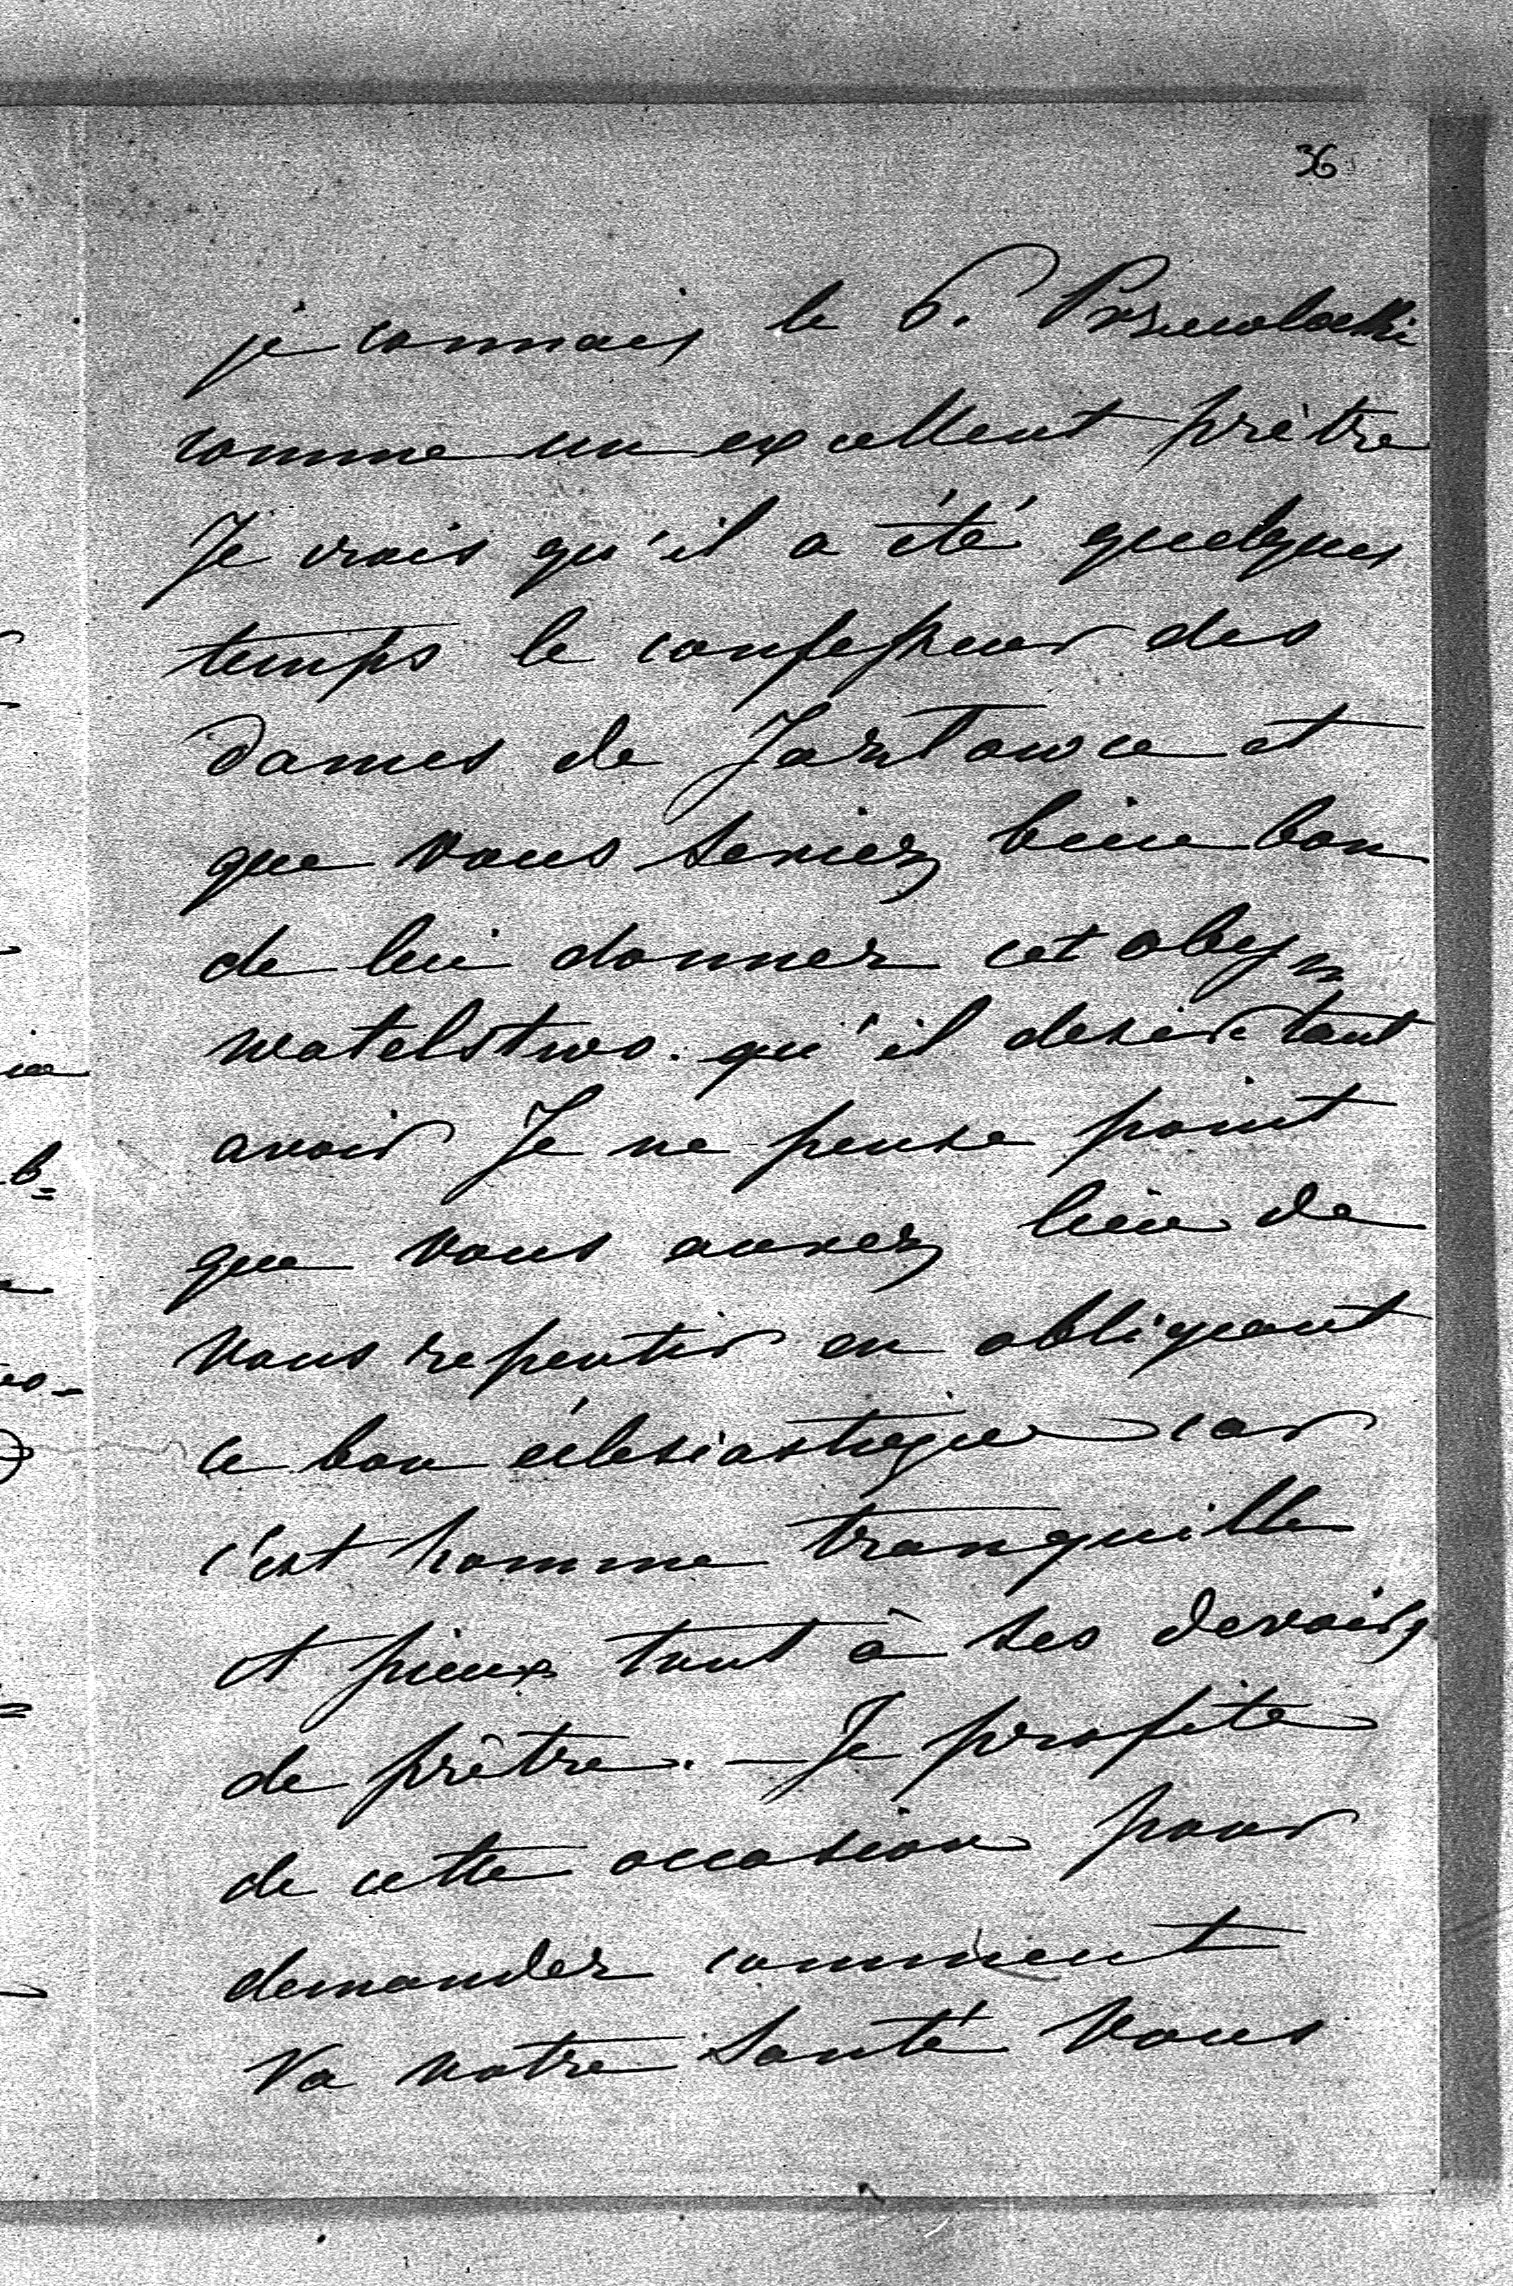 36
je connais le P.
comme un excellent prêtre
Je crois qu'il a été quelques
temps le confesseur des
dames de Jazlowce et
que vous seriez bien bon
de lui donner cet oby
watelstwo. qu'il desire tant
avoir Je ne pense point
que vous aurez lieu de
vous repentir en obligeant
ce bon éclesiastique car
c'est homme tranquille
et pieux tout à ses devoirs
de prêtre. — Je profite
de cette occasion pour
demander comment
va votre santé vous